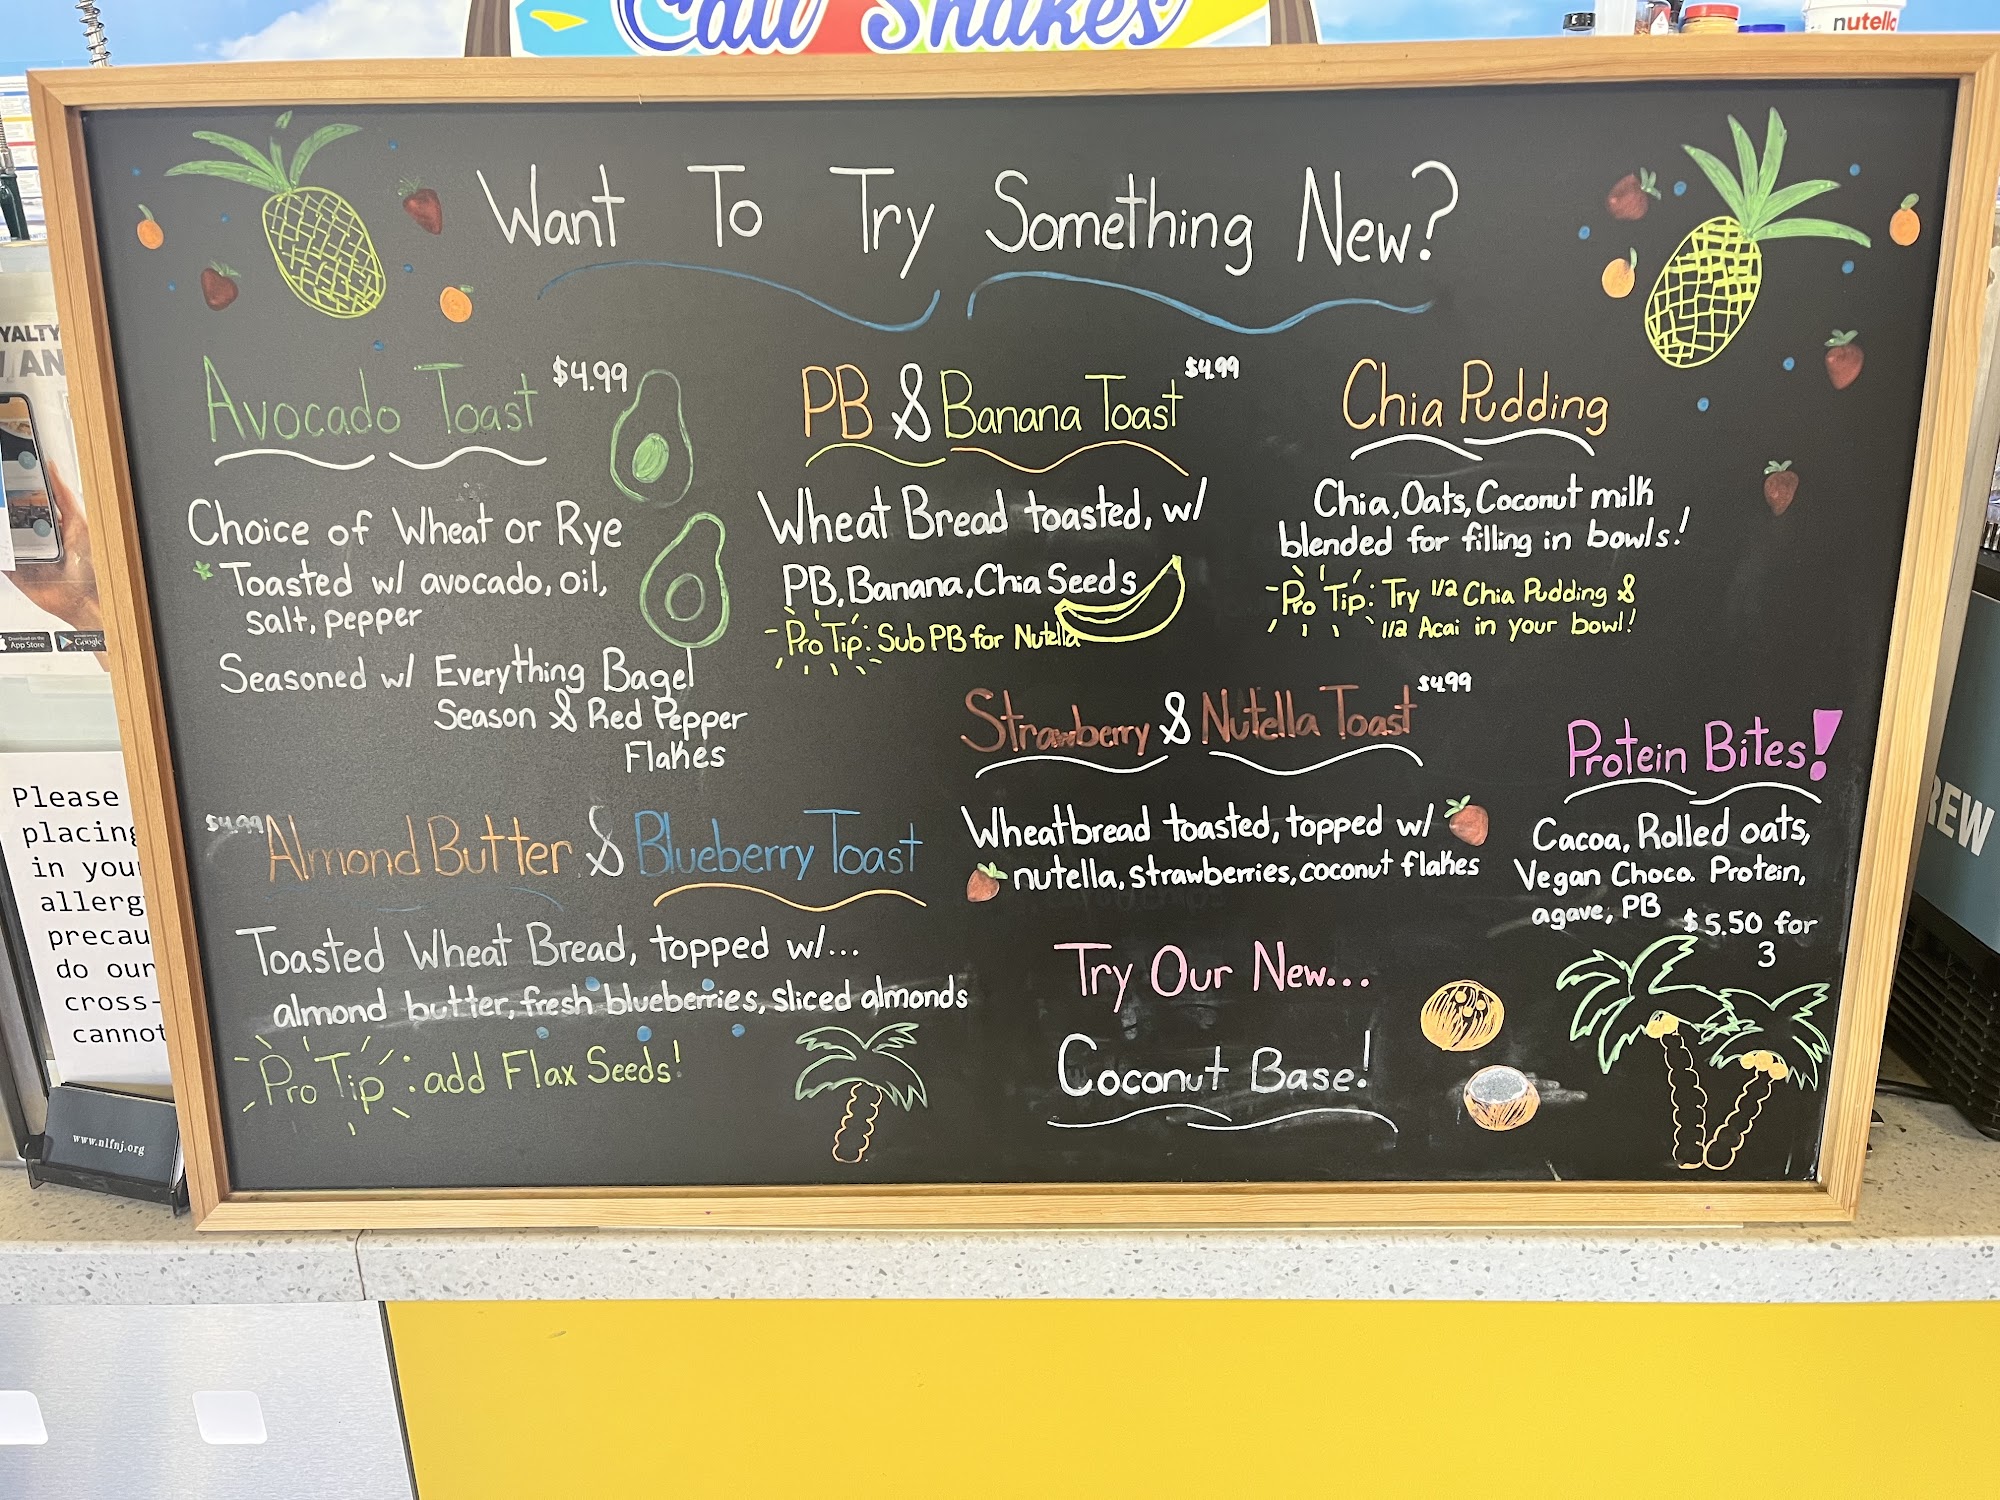 Cali Shakes
nutella
Want To Try Something New?
Avocado Toast $4.99
Choice of Wheat or Rye
Toasted w/ avocado, oil,
salt, pepper
Seasoned w/ Everything Bagel
Season & Red Pepper
Flakes
PB & Banana Toast $4.99
Wheat Bread toasted, w/
PB, Banana, Chia Seeds
Pro Tip: Sub PB for Nutella
Chia Pudding
Chia, Oats, Coconut milk
blended for filling in bowls!
Pro Tip: Try 1/2 Chia Pudding &
1/2 Acai in your bowl!
Strawberry & Nutella Toast $4.99
Wheatbread toasted, topped w/
nutella, strawberries, coconut flakes
Protein Bites!
Cacoa, Rolled oats,
Vegan Choco. Protein,
agave, PB $5.50 for
3
$4.99 Almond Butter & Blueberry Toast
Toasted Wheat Bread, topped w/...
almond butter, fresh blueberries, sliced almonds
Pro Tip: add Flax Seeds!
Try Our New...
Coconut Base!
YALTY
AN
Download on the
App Store
Google
Please
placing
in you
allerg
precau
do our
cross-
cannot
www.nlfnj.org
REW